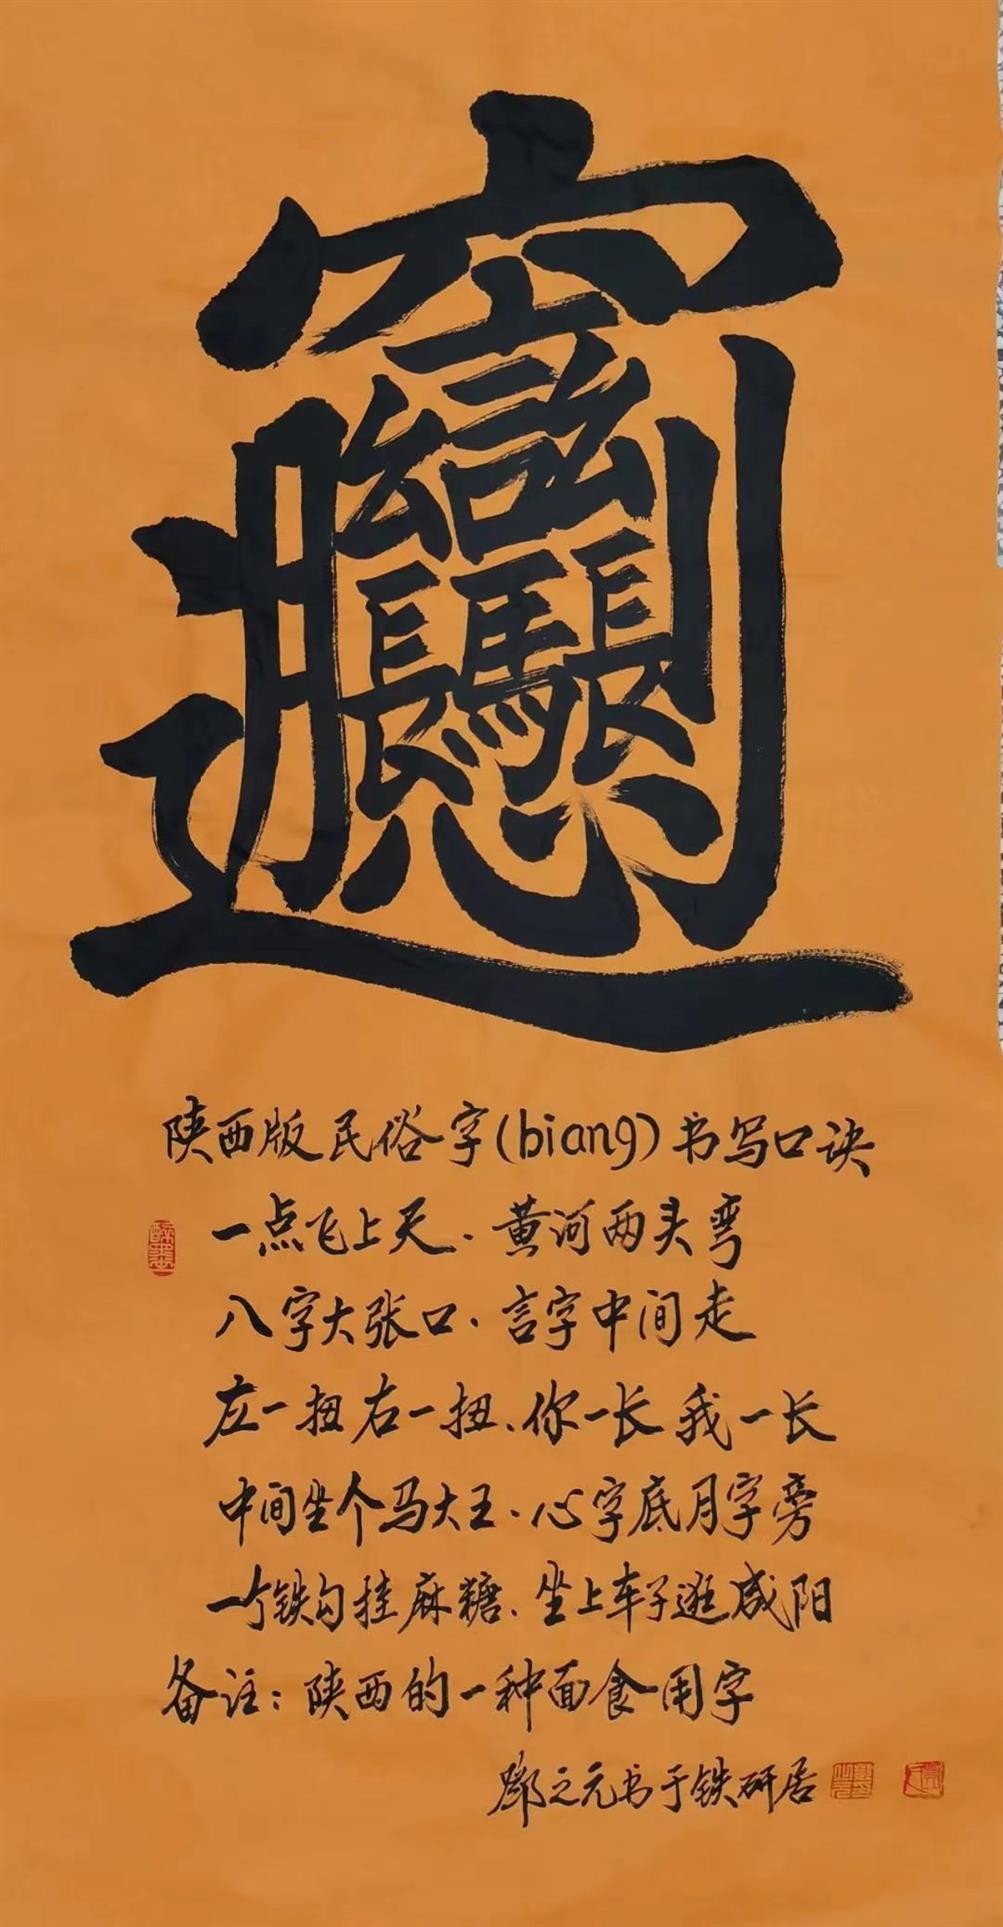 𰻞
陕西版民俗字(biang)书写口诀
一点飞上天.黄河两头弯
八字大张口.言字中间走
左一扭右一扭.你一长我一长
中间坐个马大王.心字底月字旁
一个铁勾挂麻糖.坐上车子逛咸阳
备注:陕西的一种面食用字
之元书于铁研居